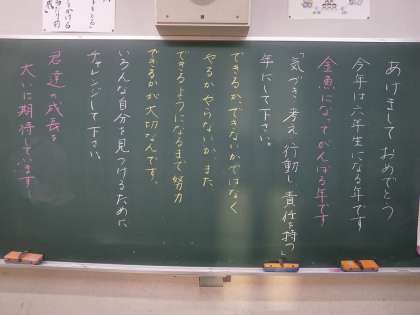 あけまして おめでとう
今年は六年生になる年です
金魚になってがんばる年です
「気づき、考え、行動し、責任を持つ」
年にして下さい。
できるか、できないかではなく
やるか やらないか、また
できるようになるまで努力
できるかが大切なんです。
いろんな自分を見つけるために
チャレンジして下さい。
君達の成長を
大いに期待しています!